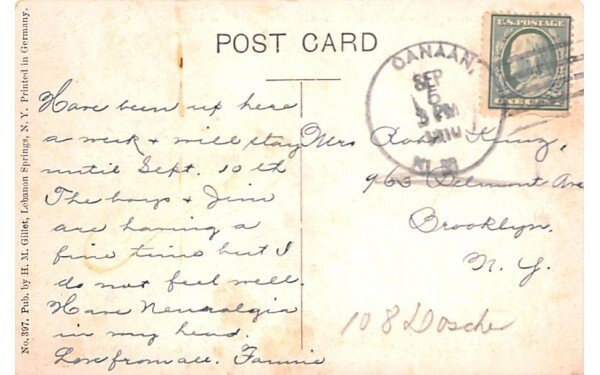 POST CARD
No. 397. Pub. by H. M. Gillet, Lebanon Springs, N. Y. Printed in Germany.
CANAAN,
SEP
5
3 PM
1910
N.Y.
U.S. POSTAGE
Have been up here
a week & will stay
until Sept. 10th
The boys & Jim
are having a
fine time but I
do not feel well.
Have Neuralgia
in my head.
Love from all. Fannie
Mrs Kunz,
963 Belmont Ave
Brooklyn.
N. Y.
108 Doscher